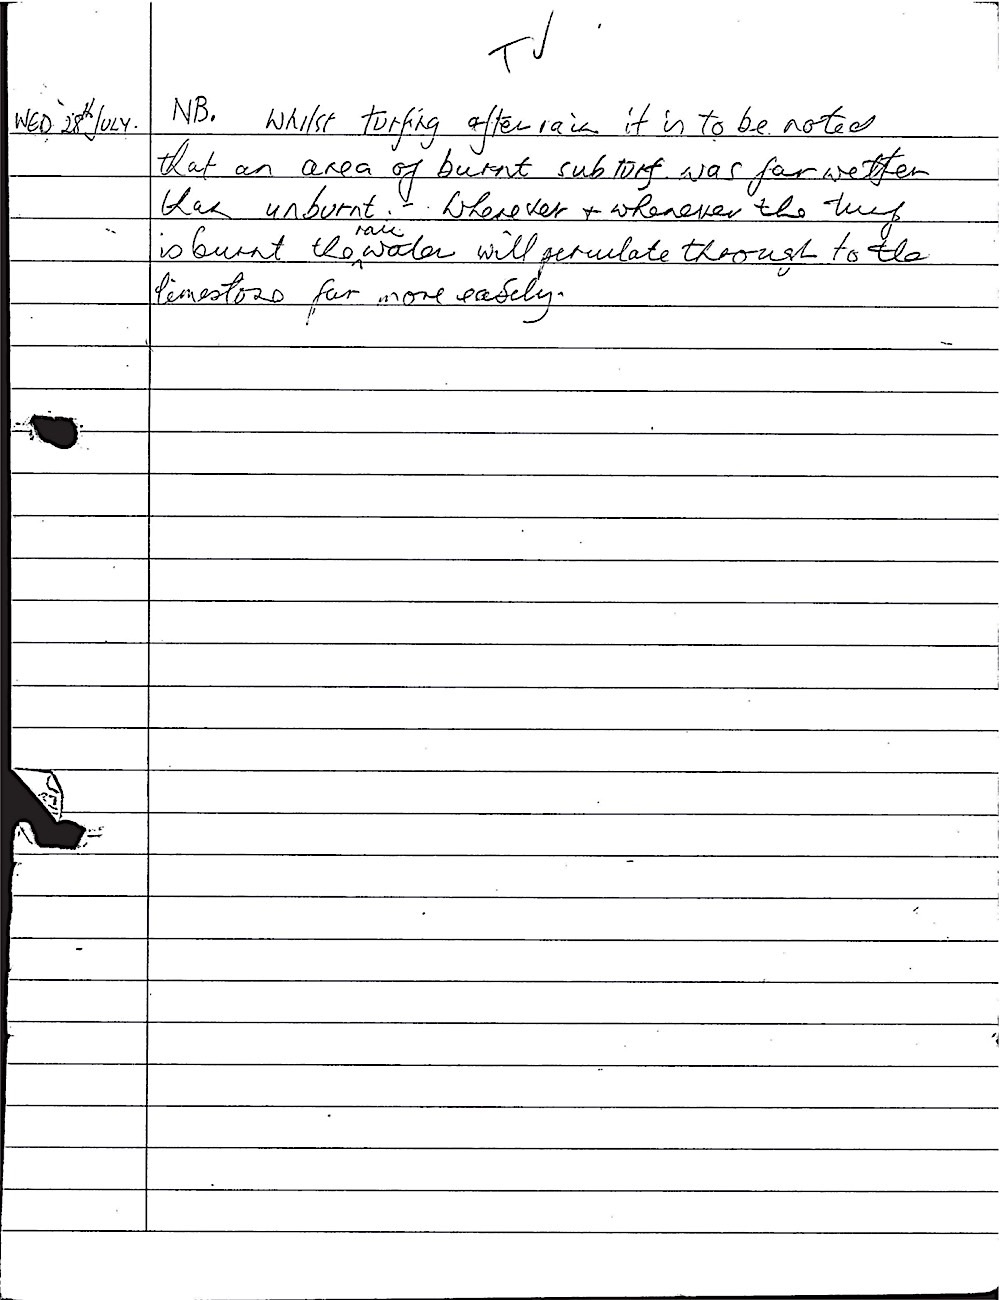 T J
WED 28th JULY. NB. Whilst turfing after rain it is to be noted
that an area of burnt subturf was far wetter
than unburnt. - Wherever + whenever the turf
is burnt the rain water will perculate through to the
limestone far more easily.